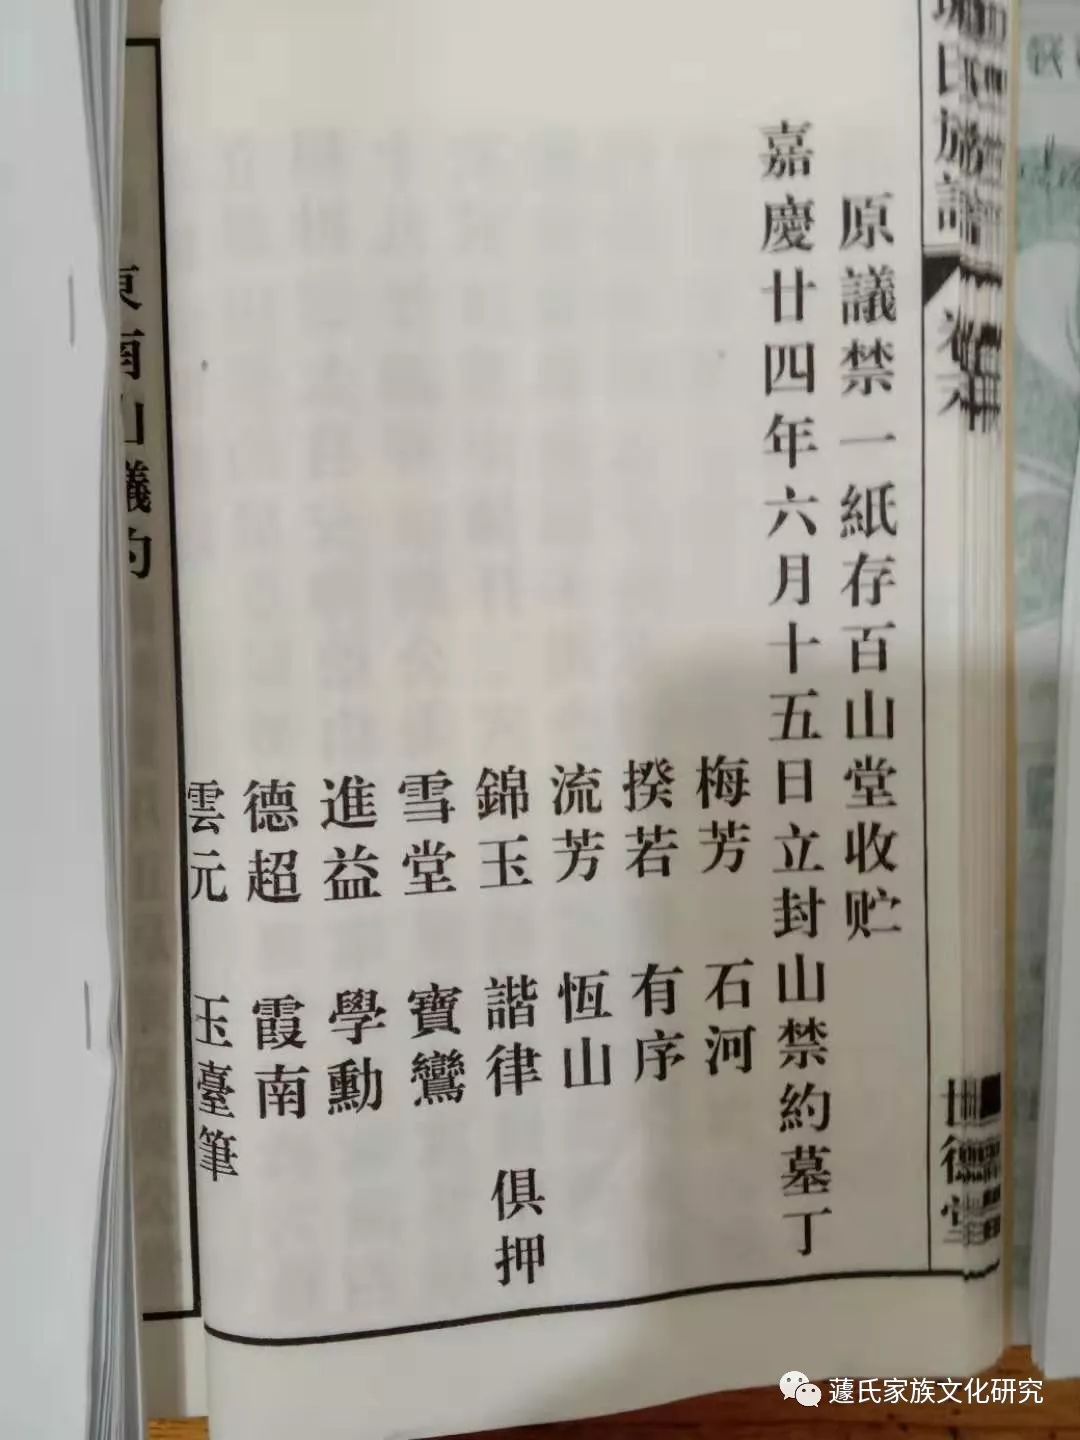 原議禁一紙存百山堂收贮
嘉慶廿四年六月十五日立封山禁約墓丁
梅芳 石河
揆若 有序
流芳 恆山
錦玉 諧律 俱押
雪堂 寶鸞
進益 學勳
德超 霞南
雲元 玉臺筆
東南山議約
蘧氏家族文化研究